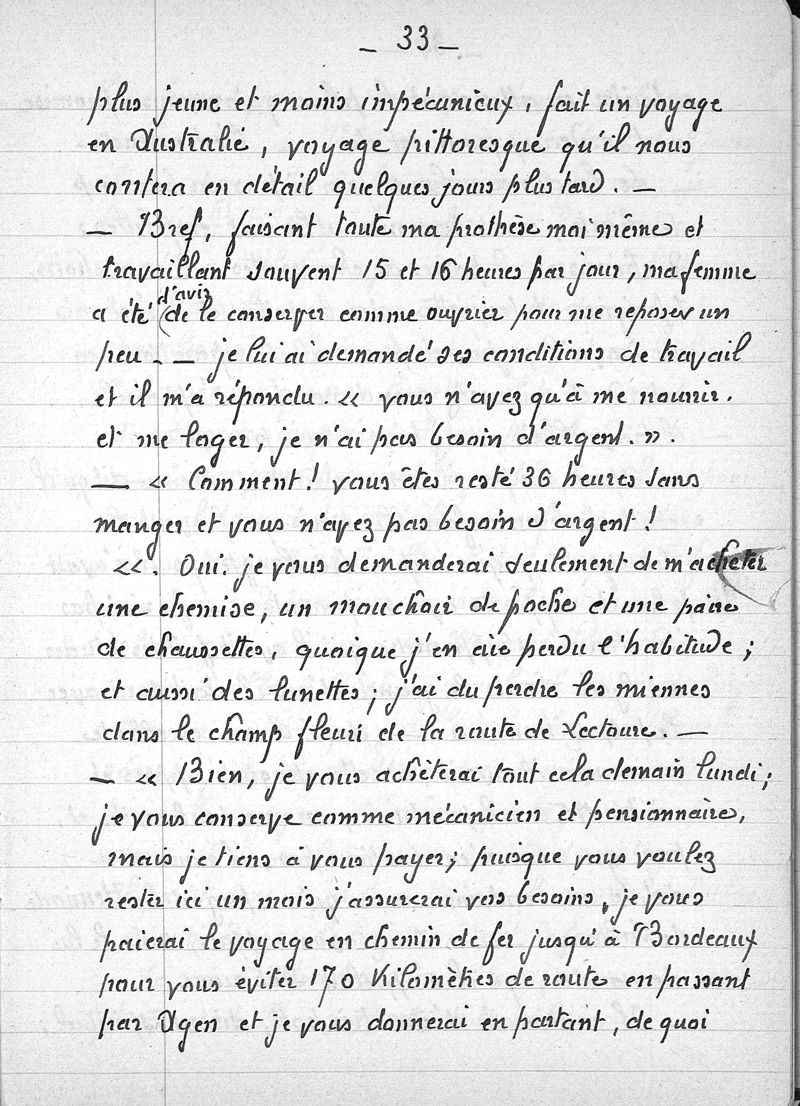 – 33 –
plus jeune et moins impécunieux, fait un voyage
en Australie, voyage pittoresque qu'il nous
contera en détail quelques jours plus tard. —
— Bref, faisant toute ma prothèse moi même et
travaillant souvent 15 et 16 heures par jour, ma femme
d'avis
a été (de le conserver comme ouvrier pour me reposer un
peu. — je lui ai demandé ses conditions de travail
et il m'a répondu. « vous n'avez qu'à me nourrir.
et me loger, je n'ai pas besoin d'argent. ».
— « Comment! vous êtes resté 36 heures sans
manger et vous n'avez pas besoin d'argent!
«. Oui. je vous demanderai seulement de m'acheter
une chemise, un mouchoir de poche et une paire
de chaussettes, quoique j'en aie perdu l'habitude;
et aussi des lunettes; j'ai du perdre les miennes
dans le champ fleuri de la route de Lectoure. —
— « Bien, je vous achèterai tout cela demain lundi;
je vous conserve comme mécanicien et pensionnaire,
mais je tiens à vous payer; puisque vous voulez
rester ici un mois j'assurerai vos besoins, je vous
paierai le voyage en chemin de fer jusqu'à Bordeaux
pour vous éviter 170 Kilomètres de route en passant
par Agen et je vous donnerai en partant, de quoi